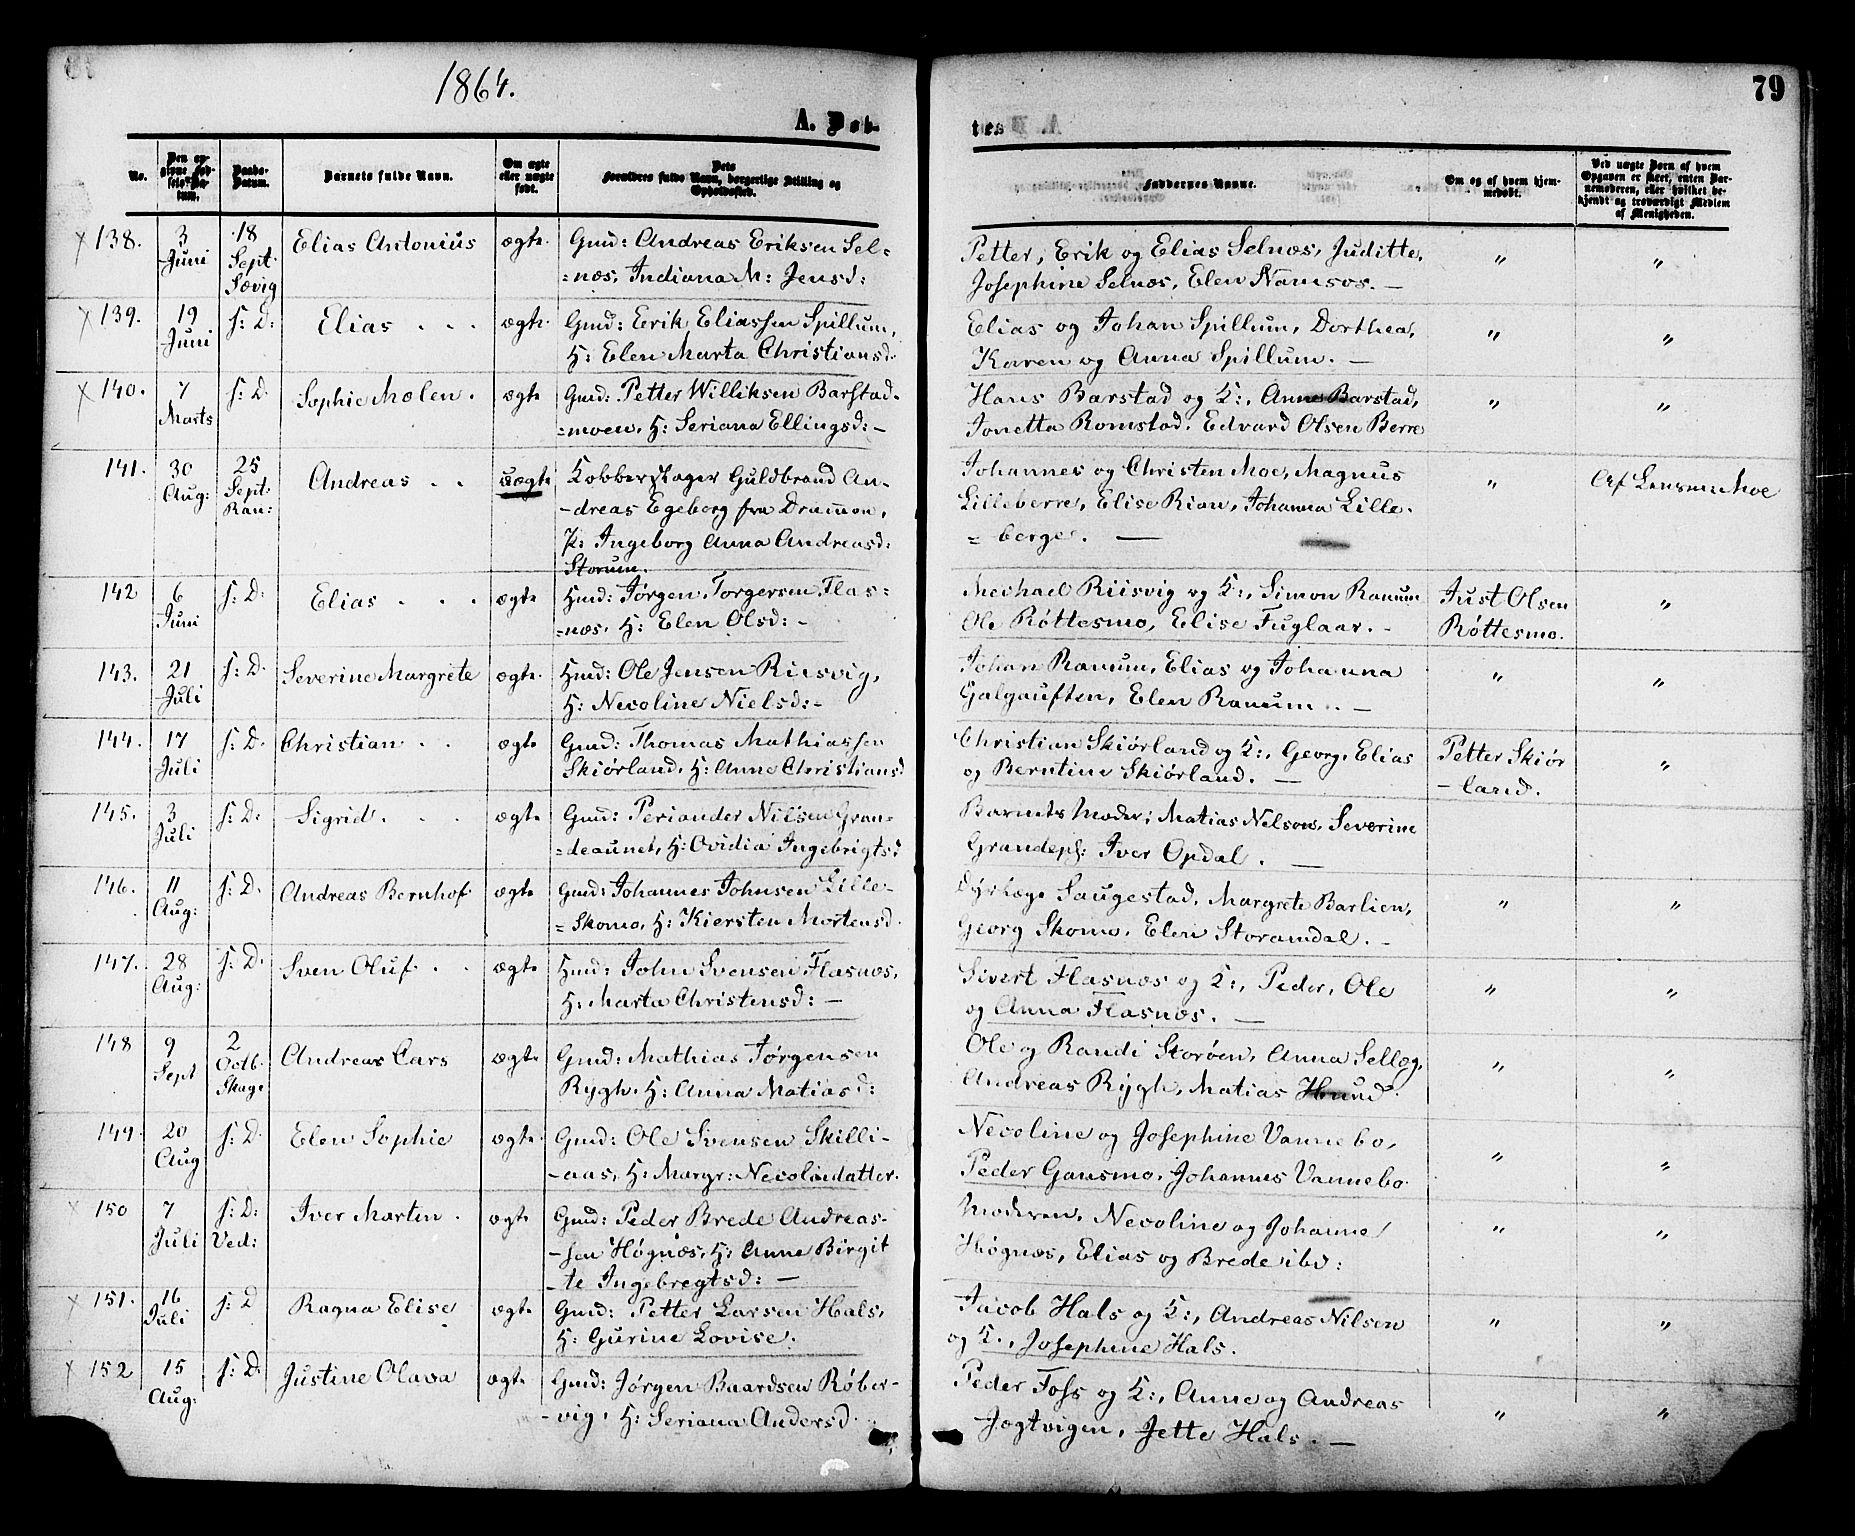 1864.
79
A. Døb-
tes
No.
Den op-
givne Fød-
sels-Da-
tum.
Daabs-
Datum.
Barnets fulde Navn.
Om ægte
eller uægte
født.
Dets
Forældres fulde Navn, borgerlige Stilling og
Opholdssted.
Faddernes Navne.
Om og af hvem hjem-
medøbt.
Ved uægte Børn af hvem
Opgaven er skeet, enten Bar-
nemoderen, eller hvilket be-
kjendt og troværdigt Medlem
af Menigheden.
× 138. 3 Juni 18 Sept. Sævig Elias Antonius ægte. Gmd: Andreas Eriksen Sel-
=næs, Indiana M: Jensd:
Petter, Erik og Elias Selnæs, Juditte,
Josephine Selnæs, Elen Namsos. — " "
× 139. 19 Juni s: D: Elias . . . ægte. Gmd: Eerik Eliassen Spillum,
H: Elen Marta Christiansd.
Elias og Johan Spillum, Dorthea,
Karen og Anna Spillum. — " "
× 140. 7 Marts s: D. Sophie Malen. ægte Gmd: Petter Williksen Barstad-
=moen, H: Seriana Ellingsd: -
Hans Barstad og K:, Anne Barstad,
Jonetta Romstad. Edvard Olsen Berre " "
141. 30 Aug: 25 Sept: Ran: Andreas . . uægte Kobberslager Guldbrand An-
-dreas Egeborg fra Drammen,
P: Ingeborg Anna Andreasd:
Storum.
Johannes og Christen Moe, Magnus
Lilleberre, Elise Rian, Johanna Lille-
=berge. — " Af Lensm. Moe
142 6 Juni s: D. Elias . . . ægte Hmd: Jørgen Torgersen Flas=
=næs, H: Elen Olsd: -
Michael Riisvig og K:, Simon Ranum
Ole Røttesmo, Elise Fuglaar. - Just Olsen
Røttesmo. "
143. 21 Juli s: D. Severine Margrete ægte. Hmd: Ole Jensen Riisvig,
H: Necoline Nielsd: -
Johan Ranum, Elias og Johanna
Galgauften, Elen Ranum. — " "
144. 17 Juli s: D. Christian . . ægte Gmd: Thomas Mathiassen
Skiørland, H: Anne Christiansd
Christian Skiørland og K:, Georg, Elias
og Berntine Skiørland. — Petter Skiør
-land. "
145. 3 Juli s: D: Sigrid. . . ægte Gmd: Periander Nilsen Gran-
=deaunet, H: Ovidia Ingebrigtsd
Barnets Moder; Matias Nelson, Severine
Grandepl: Iver Opdal. —
146. 11 Aug: s: D. Andreas Bernhof ægte Gmd: Johannes Johnsen Lille-
=Skomo, H: Kiersten Mortensd.
Dyrlæge Saugestad, Margrete Barlien,
Georg Skomo, Elen Storamdal. - " "
147. 28 Aug: s: D. Sven Oluf . . ægte Hmd: John Svensen Flasnæs,
H: Marta Christensd: —
Sivert Flasnæs og K:, Peder, Ole
og Anna Flasnæs. — " "
148 9 Sept 2 Octb. Skage Andreas Lars ægte Gmd: Mathias Jørgensen
Rygh. H: Anna Matiasd:
Ole og Randi Storøen, Anna Sellæg,
Andreas Rygh, Matias Hund. " "
149. 20 Aug s: D. Elen Sophie ægte. Gmd: Ole Svensen Skilli-
-aas, H: Margr: Necolaidatter.
Necoline og Josephine Vannebo,
Peder Gansmo, Johannes Vannebo. " "
× 150 7 Juli s: D: Ved: Iver Martin . ægte Gmd: Peder Brede Andreas-
-sen Høgnæs, H: Anne Birgit
-te Ingebregtsd: —
Moderen, Necoline og Johanne
Høgnæs, Elias og Brede ibd: " "
× 151. 16 Juli s: D Ragna Elise ægte Gmd: Petter Larsen Hals,
H: Gurine Lovise.
Jacob Hals og K:, Andreas Nilsen
og K., Josephine Hals. " "
× 152 15 Aug: s: D. Justine Olava ægte Gmd: Jørgen Baardsen Røber-
-vig, H: Seriana Andersd.
Peder Foss og K:, Anne og Andreas
Jægtvigen, Jette Hals. — " "